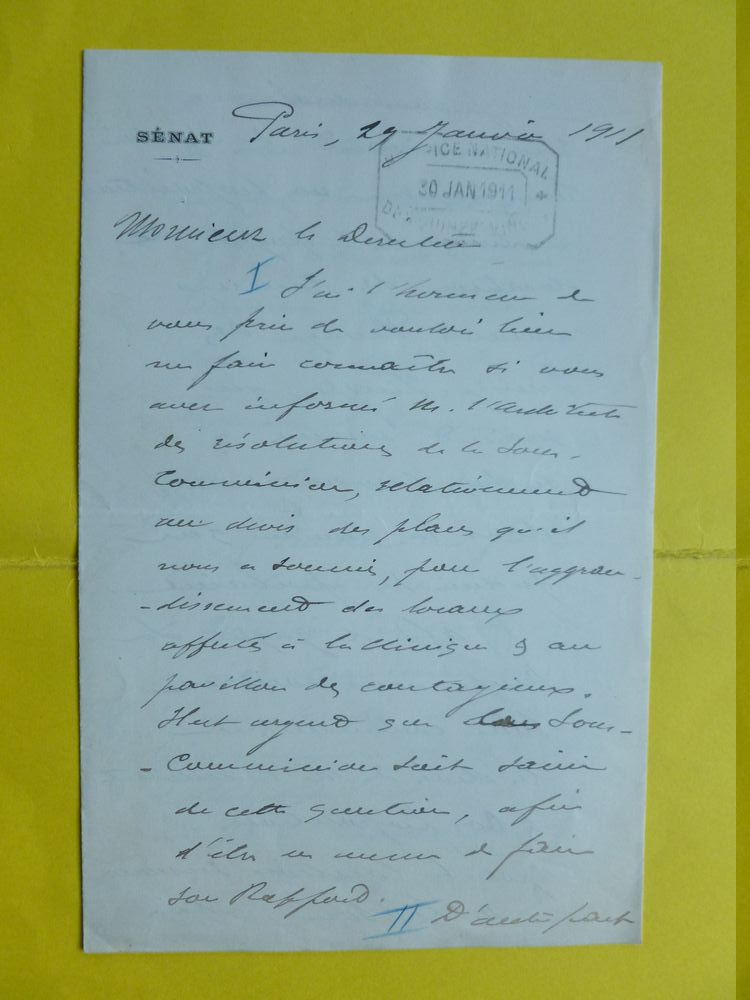 SÉNAT
Paris, 29 Janvier 1911
ICE NATIONAL
30 JAN 1911
Monsieur le Directeur
I J'ai l'honneur de
vous prier de vouloir bien
me faire connaître si vous
avez informé M. l'architecte
des résolutions de la Sous-
Commission, relativement
au devis des plans qu'il
nous a soumis, pour l'aggran-
-dissement des locaux
affectés à la clinique & au
pavillon des contagieux.
Il est urgent que Sous-
-Commission soit saisie
de cette question, afin
d'être en mesure de faire
son Rapport.
II D'autre part